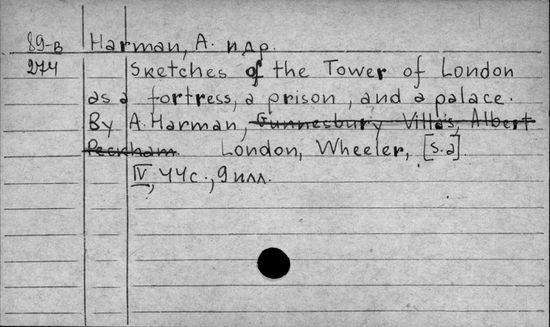 89-в Harman, A. и др.
274 Sketches of the Tower of London
as a fortress, a prison, and a palace.
By A. Harman, Gunnesbury Villas, Albert
Peckham London, Wheeler, [s.a].
IV, 44с., 9 илл.